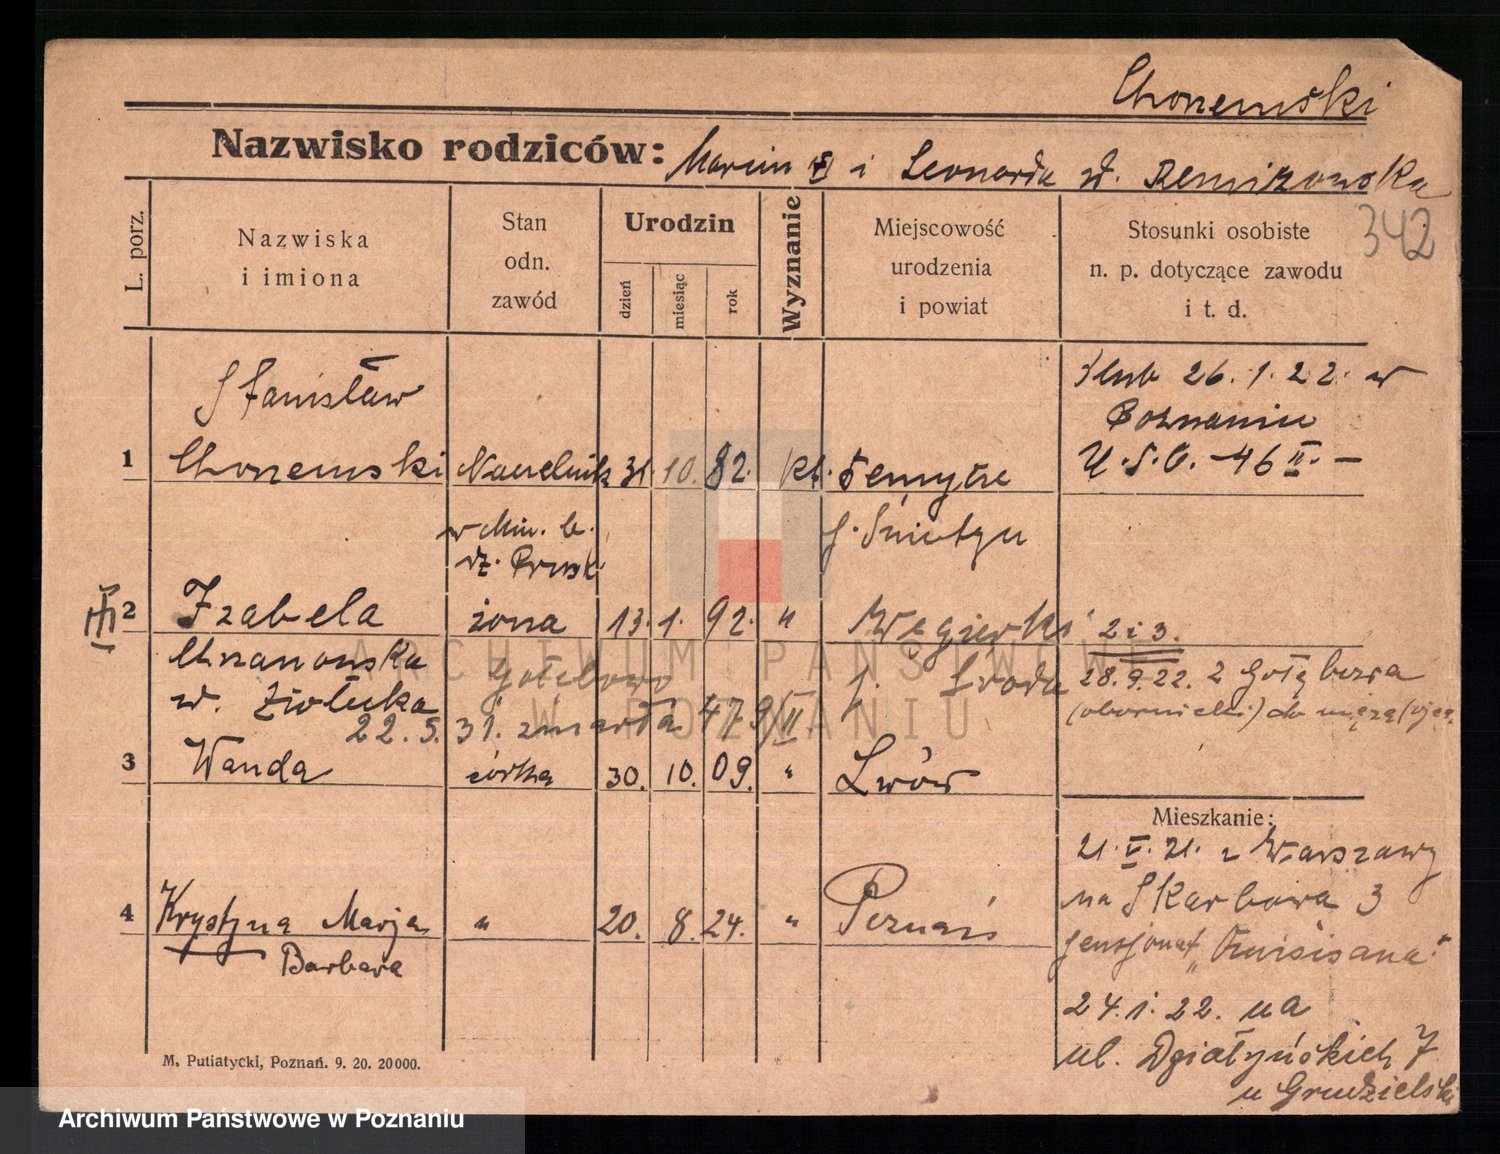 Chonemski
Nazwisko rodziców: Marcin i Leonarda
342
L. porz.
Nazwiska
i imiona
Stan
odn.
zawód
Urodzin
dzień
miesiąc
rok
Wyznanie
Miejscowość
urodzenia
i powiat
Stosunki osobiste
n. p. dotyczące zawodu
i t. d.
1
Stanisław
Chonemski
Naczelnik 31. 10. 82. kt.
w Min. b.
dz. Prusk.
ślub 26. 1. 22. w
Poznaniu
U.S.C. -46 II. -
III
2 Izabela żona 13. 1. 92. "
Chrzanowska
Węgierki
p. Środa
2 i 3.
28.9.22. z
do męża
22. 5. 31. zmarła 479/II.
3 Wanda córka 30. 10. 09. " Lwów
4 Krystyna Marja " 20. 8. 24. " Poznań
Barbara
Mieszkanie:
21. V. 21. z Warszawy
na Skarbowa 3
pensjonat
24. 1. 22. na
ul. Działyńskich 7
u Grudzielski
M. Putiatycki, Poznań. 9. 20. 20000.
ARCHIWUM PAŃSTWOWE
W POZNANIU
Archiwum Państwowe w Poznaniu